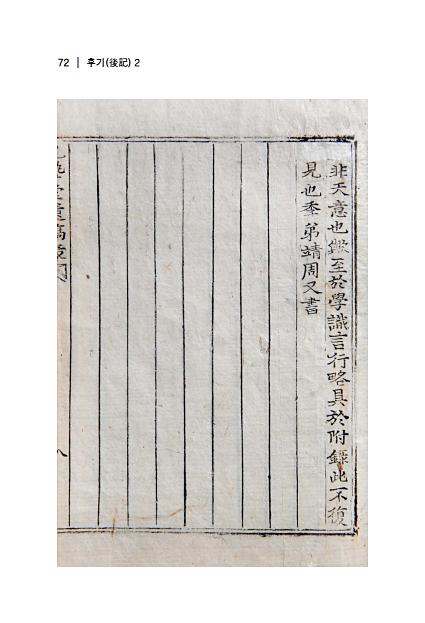 72 | 후기(後記) 2
非天意也歟至於學識言行略具於附錄此不復
見也季弟靖周又書